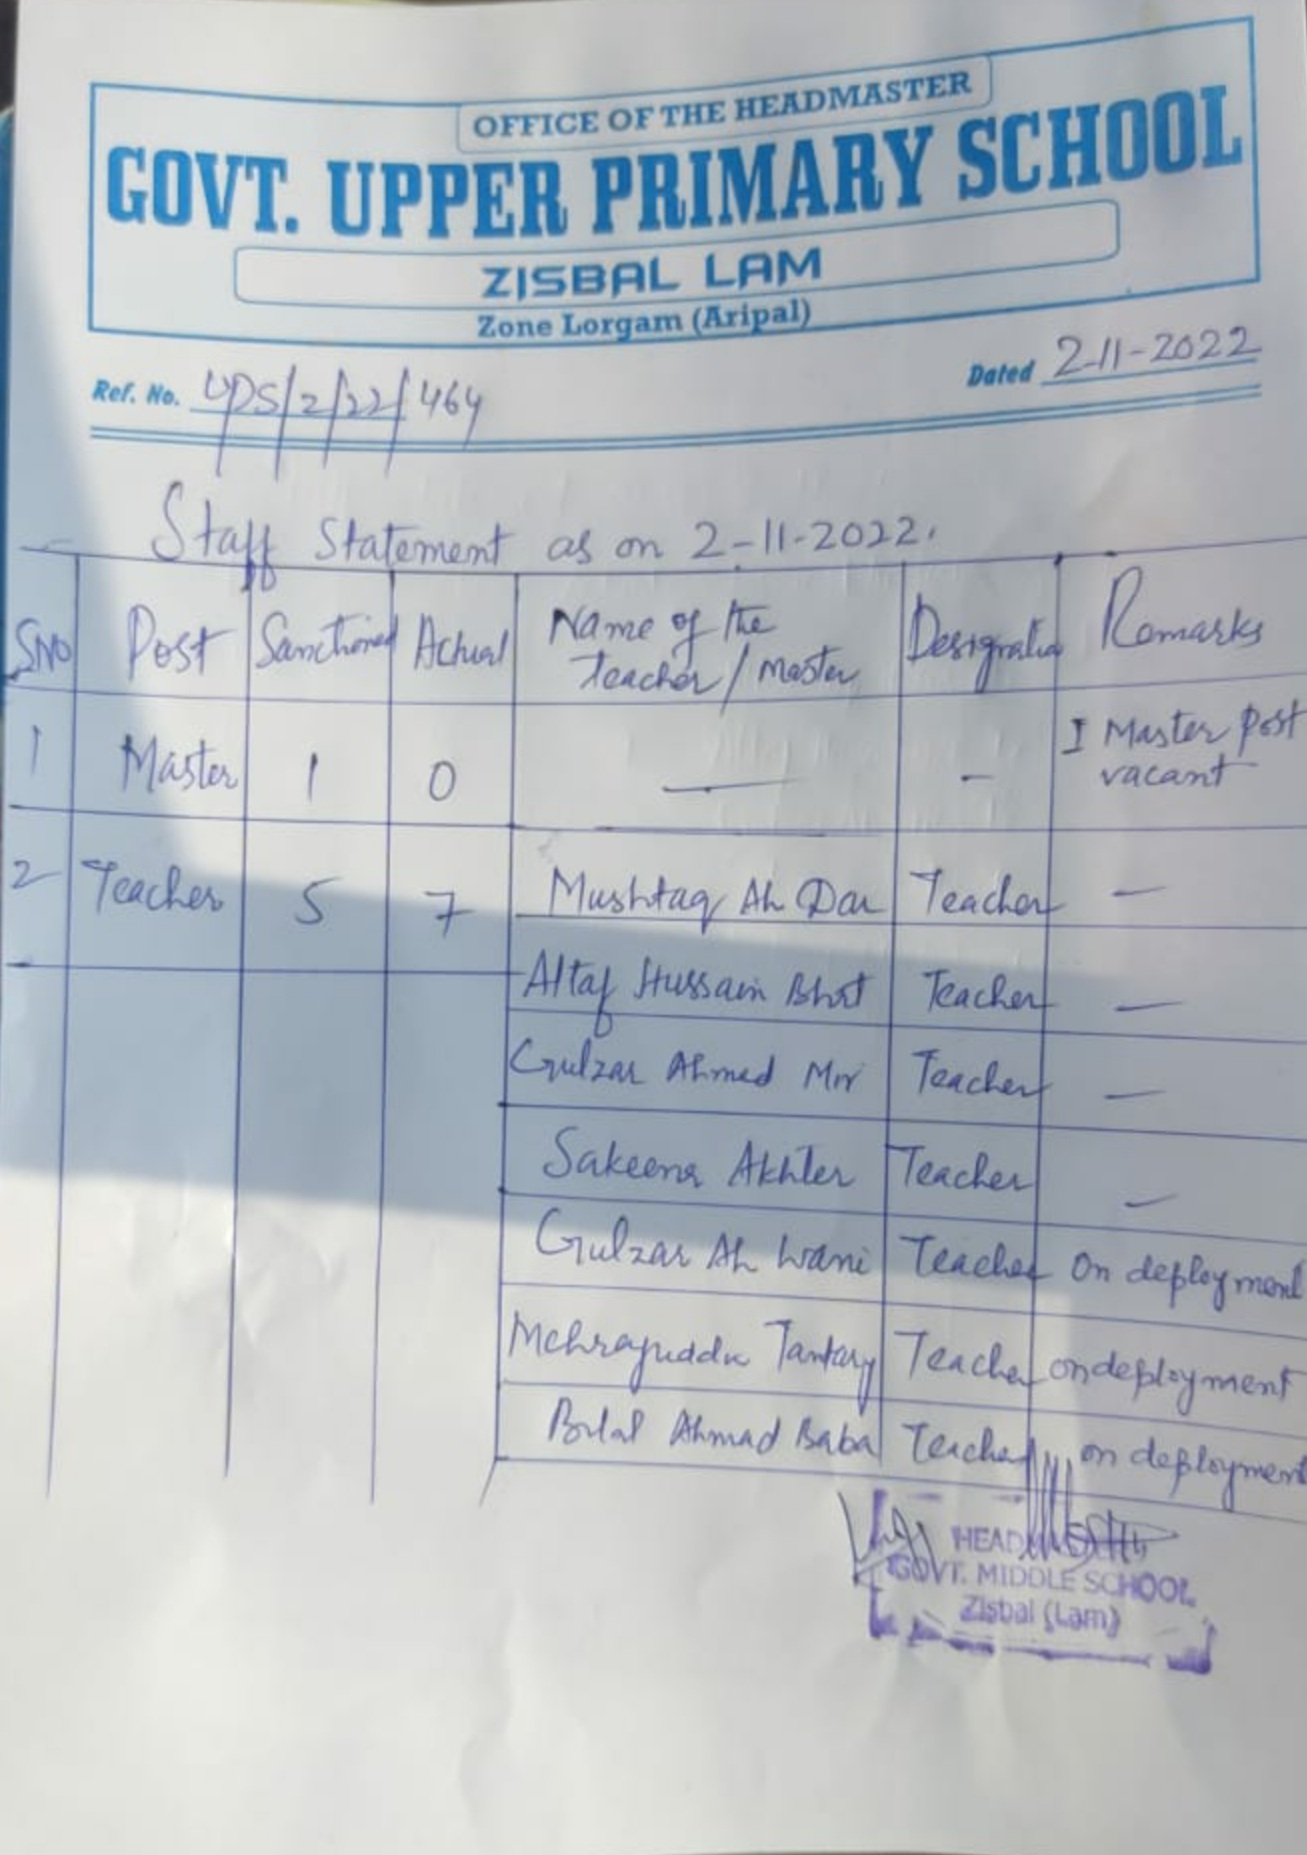 OFFICE OF THE HEADMASTER
GOVT. UPPER PRIMARY SCHOOL
ZISBAL LAM
Zone Lorgam (Aripal)
Ref. No. UPS/2/22/464 Dated 2-11-2022
Staff Statement as on 2-11-2022.
SNO Post Sanctioned Actual Name of the Teacher/Master Designation Remarks
1 Master 1 0 — - I Master post vacant
2 Teacher 5 7 Mushtaq Ah Dar Teacher —
Altaf Hussain Bhat Teacher —
Gulzar Ahmed Mir Teacher —
Sakeena Akhter Teacher —
Gulzar Ah Wani Teacher On deployment
Mehrajuddin Tantary Teacher on deployment
Bilal Ahmad Baba Teacher on deployment
HEADMASTER
GOVT. MIDDLE SCHOOL
Zisbal (Lam)